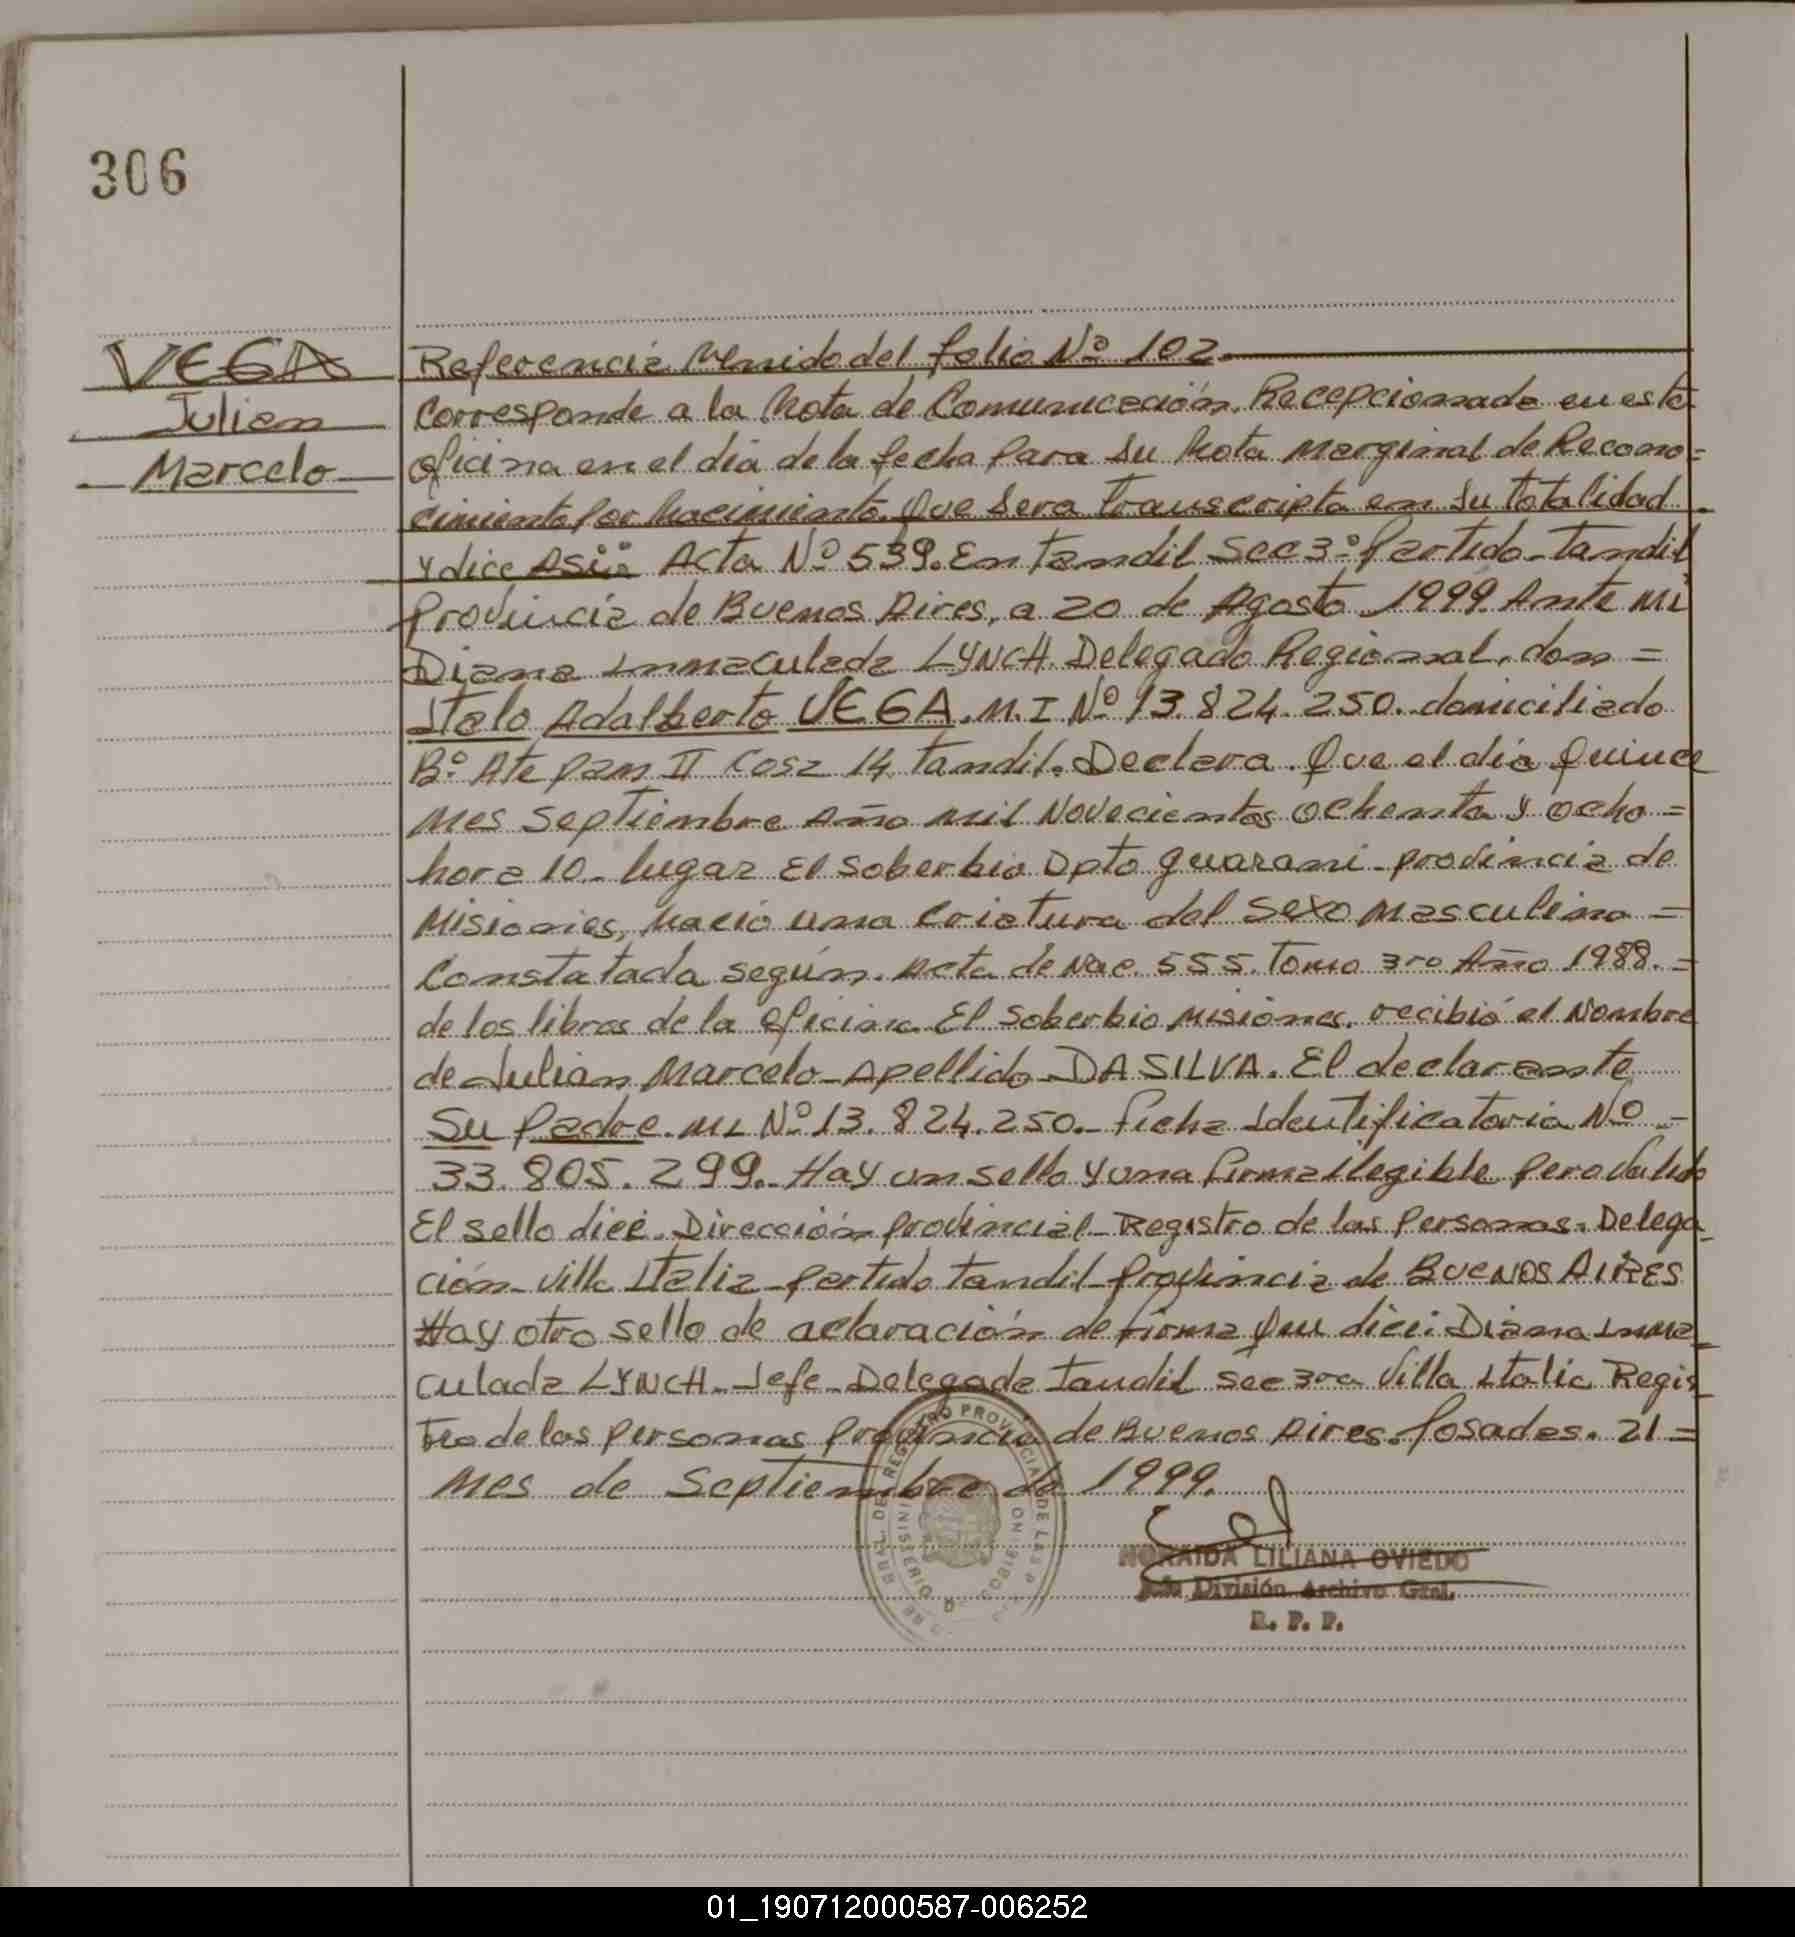 306
VEGA
Julian
Marcelo
Referencia Venido del folio Nº 102.
Corresponde a la Nota de Comunicación, Recepcionada en esta
oficina en el día de la fecha para su Nota marginal de Recono=
cimiento por Nacimiento. Que sera transcripta en su totalidad
y dice Asi: Acta Nº 539. En Tandil Sec 3º partido Tandil
provincia de Buenos Aires, a 20 de Agosto 1999. Ante mi
Diana Inmaculada LYNCH. Delegado Regional, don =
Italo Adalberto VEGA. M.I Nº 13.824.250. domiciliado
Bº Ate pam II Casa 14 Tandil. Declara. Que el día Quince
Mes Septiembre Año mil Novecientos ochenta y ocho =
hora 10. lugar El Soberbio Dpto guarani provincia de
Misiones, Nació una criatura del sexo masculino =
Constatada según. Acta de Nac. 555. Tomo 3ro Año 1988. =
de los libros de la oficina El Soberbio Misiones. recibió el Nombre
de Julian Marcelo Apellido DASILVA. El declarante
Su Padre. MI Nº 13.824.250. ficha Identificatoria Nº -
33.805.299. Hay un sello y una firma Ilegible pero Valido
El sello dice. Dirección provincial Registro de las Personas. Delega
ción Villa Italia partido Tandil provincia de BUENOS AIRES
Hay otro sello de aclaración de firma Que dice: Diana Inma
culada LYNCH. Jefe Delegada Tandil Sec 3ra Villa Italia Regis
tro de las personas provincia de Buenos Aires. Posadas. 21 =
Mes de Septiembre de 1999.
GRAL. DEL REGISTRO PROVINCIAL DE LAS P
MINISTERIO DE GOBIERNO
HORAIDA LILIANA OVIEDO
División Archivo Gral.
R. P. P.
01_190712000587-006252